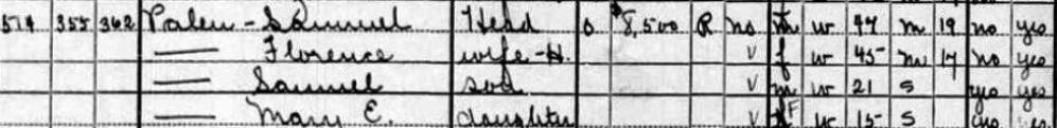 574 355 362 Palen - Samuel Head O $8,500 R no m w 47 m 19 no yes
— Florence wife - H. v f w 45 m 17 no yes
— Samuel son v m w 21 s yes yes
— Mary E. daughter v F w 15 s yes yes